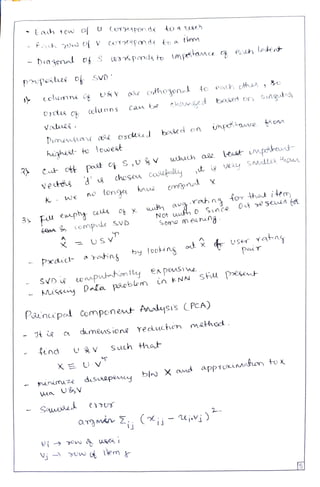 - Each row of U corresponds to a user
- Each row of V corresponds to a item
- Diagonal of S corresponds to importance of each latent
properties of SVD:
1) columns of U & V are orthogonal to each other, so
Order of columns can be changed based on singular
values.
Dimensions are ordered based on importance from
highest to lowest
2) Cut off part of S, U & V which are least important
vectors 'd' is chosen carefully, it is very smaller than
k. we no longer have original X
3) Fill empty cells of X with avg rating for that item,
Not with 0 since 0 it
some meaning
compute SVD
X̂ = USVᵀ
- Predict a rating by looking at X̂ for user rating
pair
- SVD is computationally expensive.
- Missing Data problem in KNN still present
Principal Component Analysis (PCA)
- It is a dimensions reduction method.
- find U & V such that
X ≅ U Vᵀ
- minimize discrepency b/w X and approximation to X
via U & V
- Squared error
argmin Σij (xij - ui.vj)².
ui → row of user i
vj → row of item j